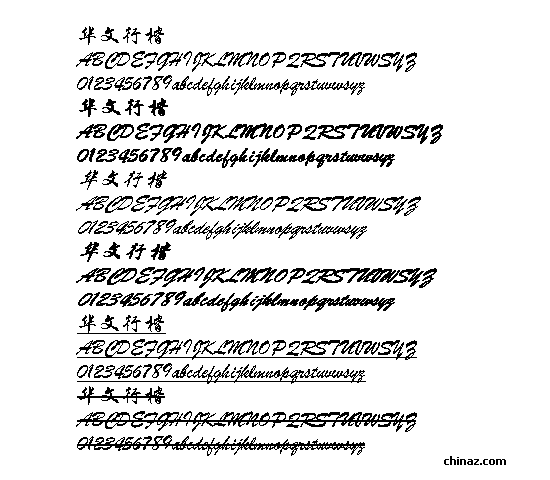 华文行楷
ABCDEFGHIJKLMNOPQRSTUVWSYZ
0123456789abcdefghijklmnopqrstuvwsyz
华文行楷
ABCDEFGHIJKLMNOPQRSTUVWSYZ
0123456789abcdefghijklmnopqrstuvwsyz
华文行楷
ABCDEFGHIJKLMNOPQRSTUVWSYZ
0123456789abcdefghijklmnopqrstuvwsyz
华文行楷
ABCDEFGHIJKLMNOPQRSTUVWSYZ
0123456789abcdefghijklmnopqrstuvwsyz
华文行楷
ABCDEFGHIJKLMNOPQRSTUVWSYZ
0123456789abcdefghijklmnopqrstuvwsyz
华文行楷
ABCDEFGHIJKLMNOPQRSTUVWSYZ
0123456789abcdefghijklmnopqrstuvwsyz
chinaz.com